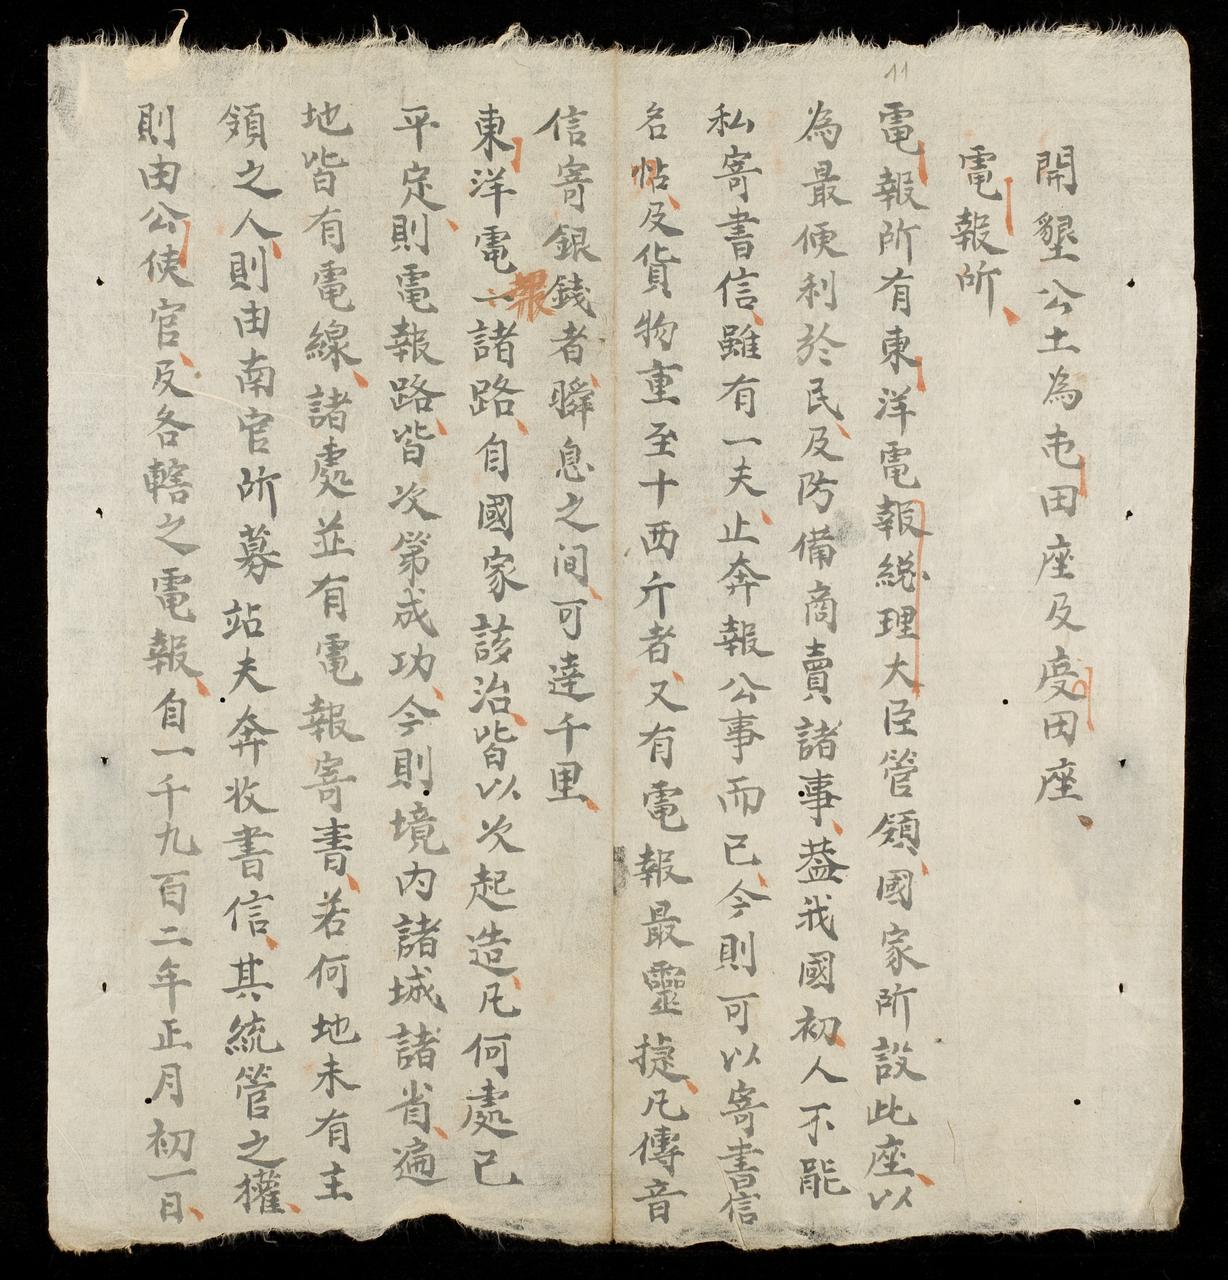 11
開墾公土為屯田座及受田座
電報所
電報所有東洋電報總理大臣管領國家所設此座以
為最便利於民及防備商賣諸事葢我國初人不能
私寄書信雖有一夫止奔報公事而已今則可以寄書信
名帖及貨物重至十西斤者又有電報最靈捷凡傳音
信寄銀錢者瞬息之间可達千里
東洋電報諸路自國家該治皆以次起造凡何處已
平定則電報路皆次第成功今則境内諸城諸省遍
地皆有電線諸處並有電報寄書若何地未有主
領之人則由南官所募站夫奔收書信其統管之權
則由公使官及各轄之電報自一千九百二年正月初一日